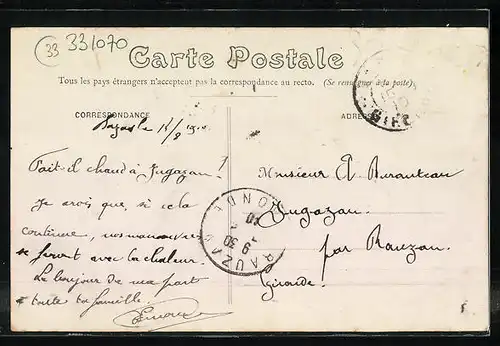 33 331070
Carte Postale
Tous les pays étrangers n'acceptent pas la correspondance au recto. (Se renseigner à la poste).
CORRESPONDANCE
ADRESSE
Bazas le 18/8
Fait-il chaud à Jugazan !
Je crois que si cela
continue, nos manœuvres
se feront avec la chaleur.
Le bonjour de ma part
à toute ta famille.
Monsieur
Jugazan.
par Rauzan.
Gironde.
RAUZAN
GIRONDE